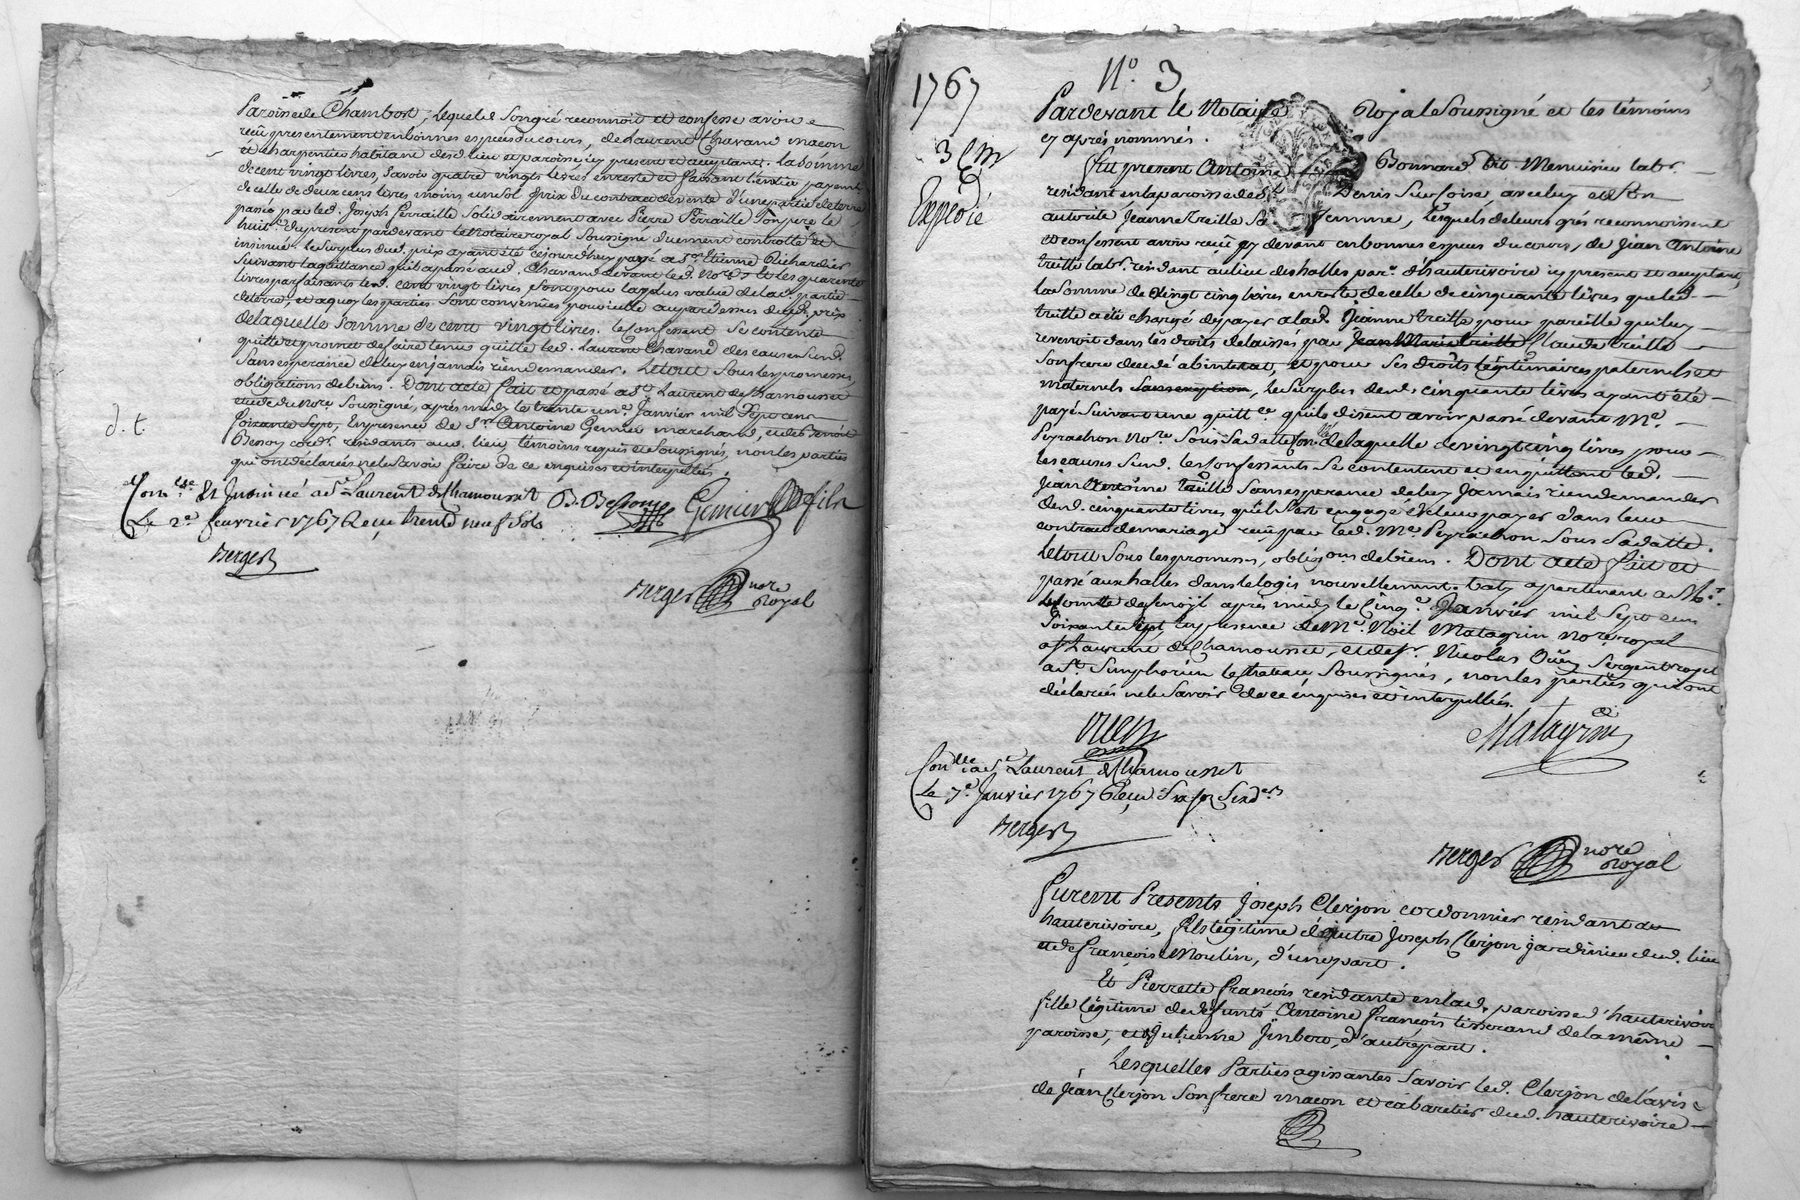 Paroisse de Chambost, lequel de son gré reconnoit et confesse avoir
reçu presentement en bonnes especes du cours, de Laurent Chavand macon
et charpentier habitant dud. lieu et paroisse icy present et acceptant. la somme
de cent vingt livres, savoir quatre vingts livres en reste et faisant l'entier payemt
de celle de deux cens livres moins un sol prix du contract de vente d'une partie de terre
passée par led. Joseph Perraille solidairement avec Pierre Perraille son pere le
huit. du present pardevant le Notaire royal soussigné duement controllé et
insinué. le surplus dud. prix ayant été cejourd'huy payé a sr. Etienne Richardier
suivant la quittance qu'il a passé aud. Chavand devant led. Nore. &
livres parfaisants led. cent vingt livres sont pour la plus value de lad. partie
de terre, et a quoy les parties sont convenües pour icelle au pardessus dud. prix
de laquelle somme de cent vingt livres. le confessant se contente
quitte et promet de faire tenir quitte led. Laurent Chavand des causes susd.
sans esperance de luy en jamais rien demander. Le tout sous les promesses,
obligations de biens. Dont acte fait et passé a St. Laurent de Chamousset
etude du Nore. soussigné, apres midy le trente un. Janvier mil sept cens
soixante sept, en presence de sr. Antoine Genier marchand, et de Benoit
residants aud. lieu témoins requis et soussignés, non les parties
qui ont déclarées ne le savoir faire de ce enquises et interpellées.
d. t.
Conlle. Et Insinué a St. Laurent de Chamousset
Le 2e fevrier 1767 Reçu trente neuf sols
Berger
Genier fils
Berger nore
Royal
1767
N°. 3
3
Expedié
Pardevant le Notaire Royal Soussigné et les témoins
cy aprés nommés.
Fut present Antoine Bonnard dit Menuisier labr.
residant en la paroisse de St. Denis sur Coise, avec luy et de son
autorité Jeanne treille sa femme, lesquels de leurs grés reconnoissent
et confessent avoir reçu cy devant en bonnes especes du cours, de Jean Antoine
treille labr. residant au lieu des halles parr. d'hauterivoire icy present et acceptant,
la somme de vingt cinq livres en reste de celle de cinquante livres que led.
treille a été chargé de payer a lad. Jeanne treille pour pareille qui luy
revenoit dans les droits delaissés par Jean Marie treille Claude treille
son frere decedé abintestat, et pour ses droits légitimaires paternels et
maternels, le surplus desd. cinquante livres ayant été
payé suivant une quittce. qu'ils disent avoir passé devant Me.
Peyrachon Nore. sous sa datte. de laquelle de vingt cinq livres pour
les causes susd. les confessants se contentent et en quittent led.
Jean Antoine treille sans esperance de luy jamais rien demander
desd. cinquante livres qu'il s'est engagé de leur payer dans leur
contract de mariage reçu par led. Me. Peyrachon sous sa datte.
Le tout sous les promesses, obligons de biens. Dont acte fait et
passé aux halles dans le logis nouvellement baty apartenant a Mr.
le Comte de apres midy le Cinqe. Janvier mil sept cens
soixante sept, en presence de Me. Noel Matagrin nore. royal
a St Laurent de Chamousset, et de sr. Nicolas Ouen sergent royal
a St. Simphorien le chateau soussignés, non les parties qui ont
déclarées ne le savoir de ce enquises et interpellées.
Ouen
Matagrin
Conlle a St Laurent de Chamousset
Le 7e. Janvier 1767 Reçu
Berger
Berger nore
Royal
Furent Presents Joseph Clerjon cordonnier residant au
hauterivoire, fils légitime d'autre Joseph Clerjon jardinier dud. lieu
et de françoise Moulin, d'une part.
Et Pierrette françois residante en lad. paroisse d'hauterivoire
fille légitime de defunts Antoine françois tisserand de la même
paroisse, et de Julienne Jinbert, d'autre part.
Lesquelles Parties agissantes savoir led. Clerjon de l'avis
de Jean Clerjon son frere macon et cabaretier dud. hauterivoire